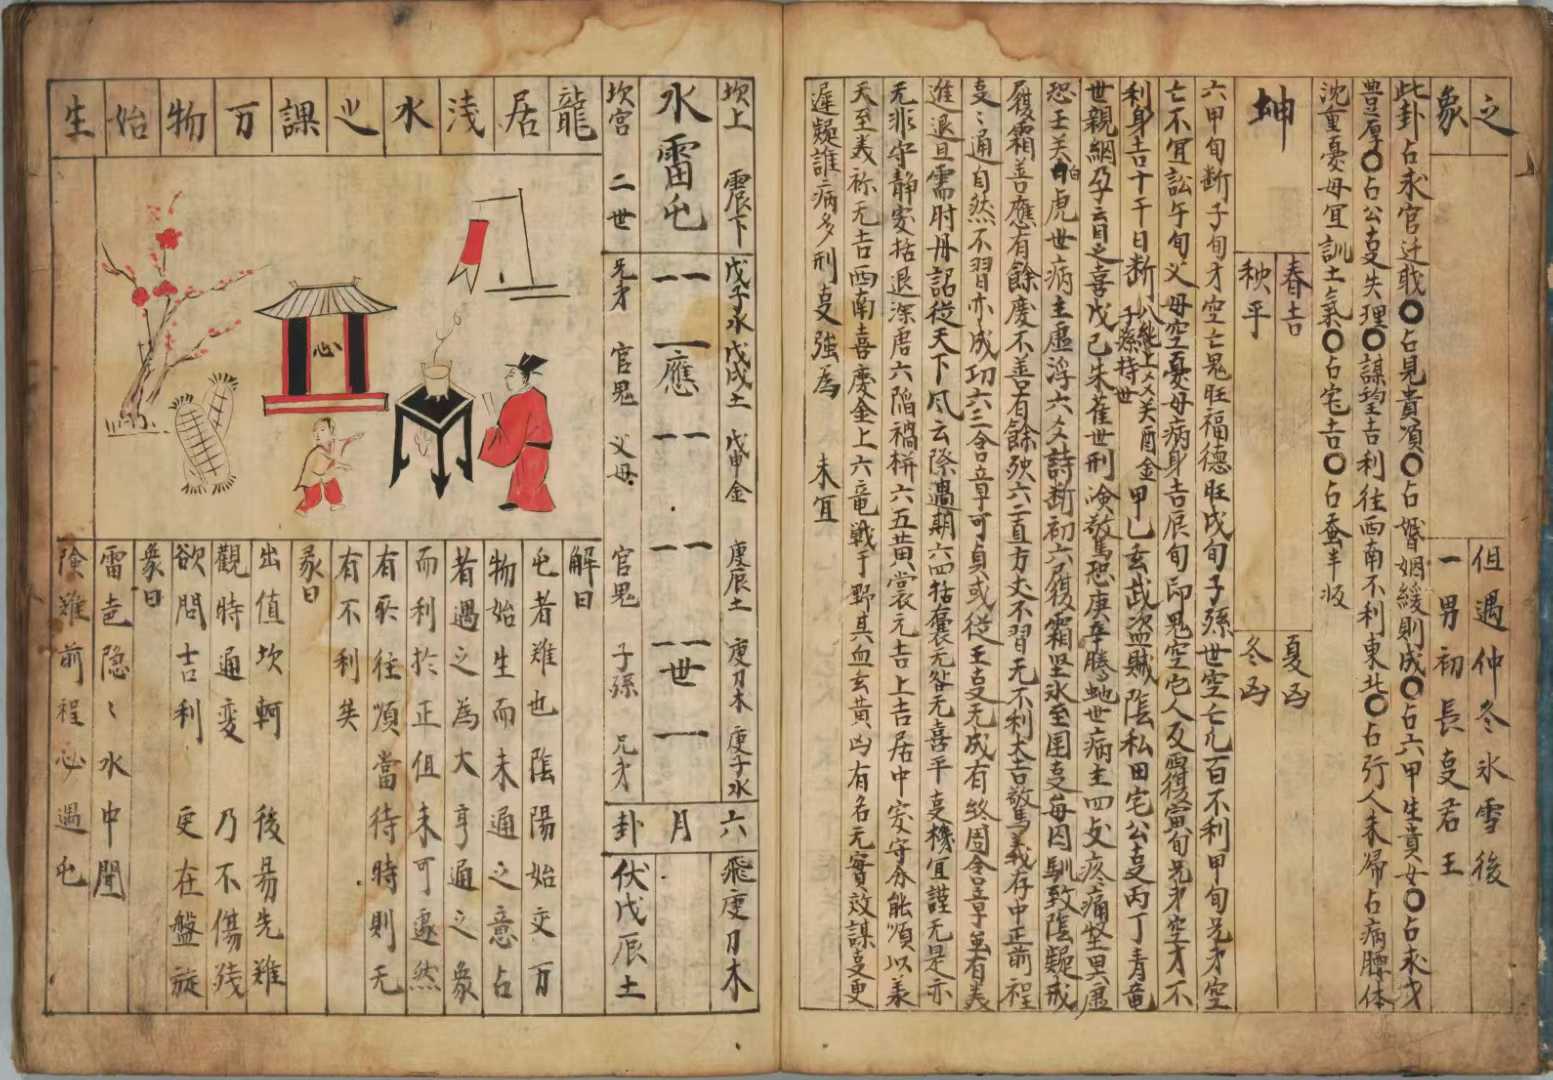 之象
但遇仲冬氷雪後
一男初長夌君王
此卦占求官迁戝〇占見貴順〇占婚姻緩則成〇占六甲生貴女〇占求才
豊厚〇占公夌失理〇謀望吉利往西南不利東北〇占行人未帰占病腰体
沈重憂母宜訓土氣〇占宅吉〇占蚕半收
坤
春吉 夏凶
秧平 冬凶
六甲旬断子旬才空亡鬼旺福德旺戌旬子孫世空亡凡百不利甲旬兄才空
亡不宜訟午旬父母空憂母病身吉辰旬印鬼空宅人反覆寅旬兄才空才不
利身吉十干日断
世親網孕育之喜戊己朱雀世刑喰敬驚恐庚辛騰虵世病主四攴疼痛堅里虛
恐壬癸白虎世病主虛浮六爻詩断初六履霜坚氷至因夌每因馴致陰疑戒
履霜善應有餘慶不善有餘殃六二直方丈不習无不利大吉驚義存中正前程
夌〻通自然不習亦成功六三含章可貞或従王夌无成有終周令呈章亘有義
進退旦需时丹詔従天下风云際遇期六四括囊无咎无喜平夌機宜謹无是亦
无非牢守静安括退深居六陷禍栟六五黄裳元吉上吉居中安守分能順以義
天至美祢无吉西南喜慶金上六竜戦于野其血玄黄凶有名无實效謀夌更
遲疑誰病多刑夌強為 未宜
坎上 震下
水雷屯
坎宮 二世
戊子水 戊戌土 戊申金 庚辰土 庚刀木 庚子水
應
世
兄才 官鬼 父母 官鬼 子孫 兄才
六月卦
飛庚刀木
伏戊辰土
龍居浅水之課万物始生
心
解曰
屯者难也隂陽始交万
物始生而未通之意占
者遇之為大亨通之象
而利扵正但未可遽然
有所往順當待時則无
有不利矣
彖曰
出值坎軻 後易先难
觀時通变 乃不傷残
欲問吉利 更在盤旋
象曰
雷邑隐〻水中聞
險难前程必遇屯